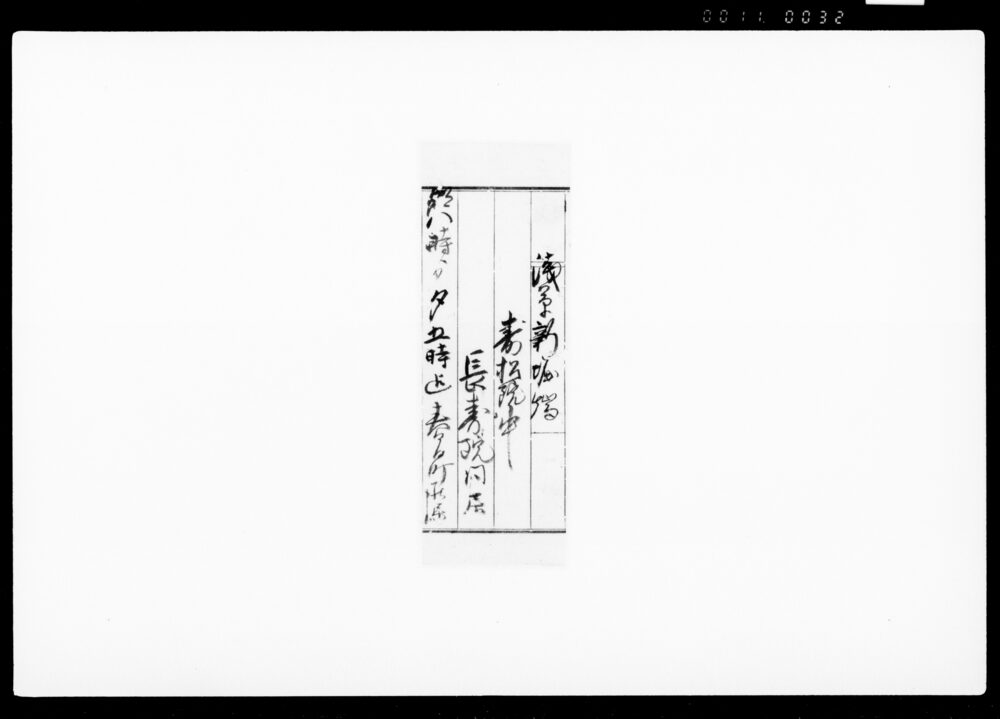 0011. 0032
浅草新堀端
寿松院中
長寿院同居
八時ゟ夕五時迄